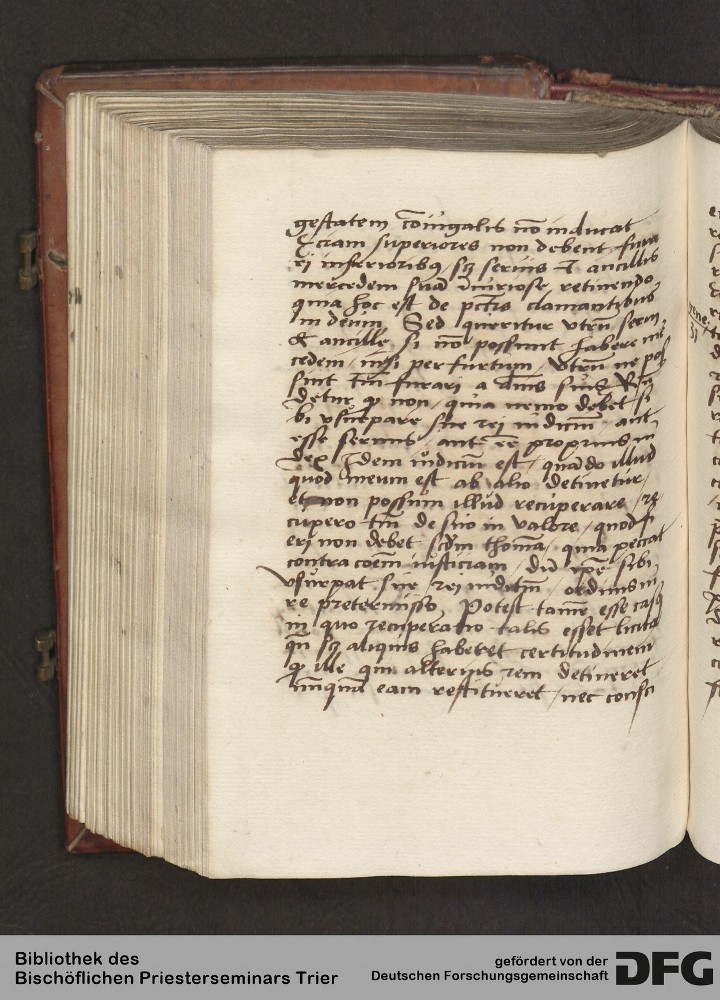 gestatem coniugalis nō inducat
Eciam superiores non debent fura
ri inferioribꝰ, sꝫ seruis ł ancillis
mercedem suā iniuriose retinendo
quia hoc est de pctīs clamantibus
in deum. Sed queritur vtrū serui
et ancille, si nō possunt habere mer
cedem, nisi per furtum, vtrū ne pos
sint tm̄ furari a dnīs suis Rn̄
detur ꝙ non, quia nemo debet si
bi vsurpare sue rei iudiciū, aut
esse seruus, aut eē proprius iu
dex Idem iudiciū est, quādo illud
quod meum est ab alio detinetur
et non possum illud recuperare, re
cupero tm̄ de suo in valore, quod fi
eri non debet scdm thomā, quia peccat
contra coēm iusticiam, dū ipē sibi
vsurpat sue rei iuditiū, ordine iu
re pretermisso. Potest tamē esse casus
in quo recuperatio talis esset licita
qn̄ sꝫ aliquis haberet certitudinem
ꝙ ille qui alterius rem detineret
nūquā eam restitueret, nec consci
31
Bibliothek des
Bischöflichen Priesterseminars Trier
gefördert von der
Deutschen Forschungsgemeinschaft
DFG